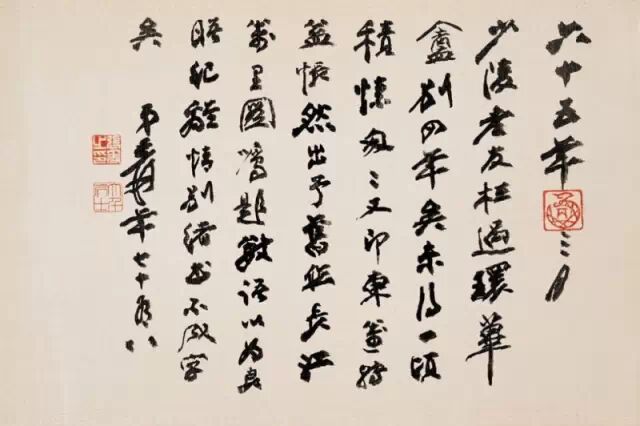 六十五年三月
少陵老友枉過環蓽
盦別四年矣未得一頃
積愫匆匆又即東邁
益悵然出予舊 長江
萬里圖屬題數語以為良
晤紀離情別緒書不成字
矣 弟爰年七十有八